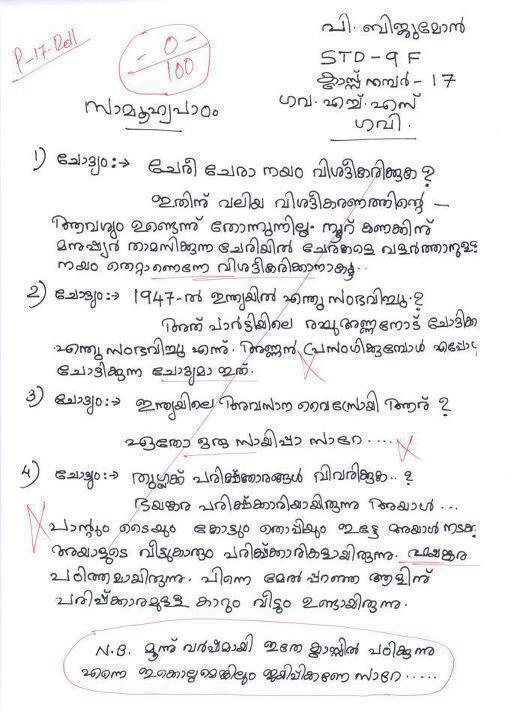 P-17-Dell
- 0 -
100
വി. ബിജുമോൻ
STD-9 F
ക്ലാസ്സ് നമ്പർ - 17
ഗവ. എച്ച്. എസ്
ഗവി.
സാമൂഹ്യപാഠം
1) ചോദ്യം:→ ചേരീ ചേരാ നയം വിശദീകരിക്കുക ?
ഇതിന് വലിയ വിശദീകരണത്തിന്റെ –
ആവശ്യം ഉണ്ടെന്ന് തോന്നുന്നില്ല. നൂറ് കണക്കിന്
മനുഷ്യർ താമസിക്കുന്ന ചേരിയിൽ ചേരകളെ വളർത്താനുള്ള
നയം തെറ്റാണെന്നേ വിശദീകരിക്കാനാകൂ..
2) ചോദ്യം:→ 1947-ൽ ഇന്ത്യയിൽ എന്തു സംഭവിച്ചു.?
അത് പാർട്ടിയിലെ രഘുഅണ്ണനോട് ചോദിക്ക
എന്തു സംഭവിച്ചു എന്ന്. അണ്ണൻ പ്രസംഗിക്കുമ്പോൾ എപ്പോ
ചോദിക്കുന്ന ചോദ്യമാ ഇത്.
3) ചോദ്യം:→ ഇന്ത്യയിലെ അവസാന വൈസ്രോയി ആര് ?
ഏതോ ഒരു സായിപ്പാ സാറേ ....
4) ചോദ്യം:→ തുഗ്ലക് പരിഷ്ക്കാരങ്ങൾ വിവരിക്കുക..?
ഭയങ്കര പരിഷ്ക്കാരിയായിരുന്നു അയാൾ ...
പാന്റും ടൈയും കോട്ടും തൊപ്പിയും ഇട്ടേ അയാൾ നടക്കൂ.
അയാളുടെ വീട്ടുകാരും പരിഷ്ക്കാരികളായിരുന്നു. ഭയങ്കര
പഠിത്തമായിരുന്നു. പിന്നെ മേൽപ്പറഞ്ഞ ആളിന്
പരിഷ്ക്കാരമുള്ള കാറും വീടും ഉണ്ടായിരുന്നു.
N.B. മൂന്ന് വർഷമായി ഇതേ ക്ലാസ്സിൽ പഠിക്കുന്നു
എന്നെ ഇക്കൊല്ലമെങ്കിലും ജയിപ്പിക്കണേ സാറേ .....